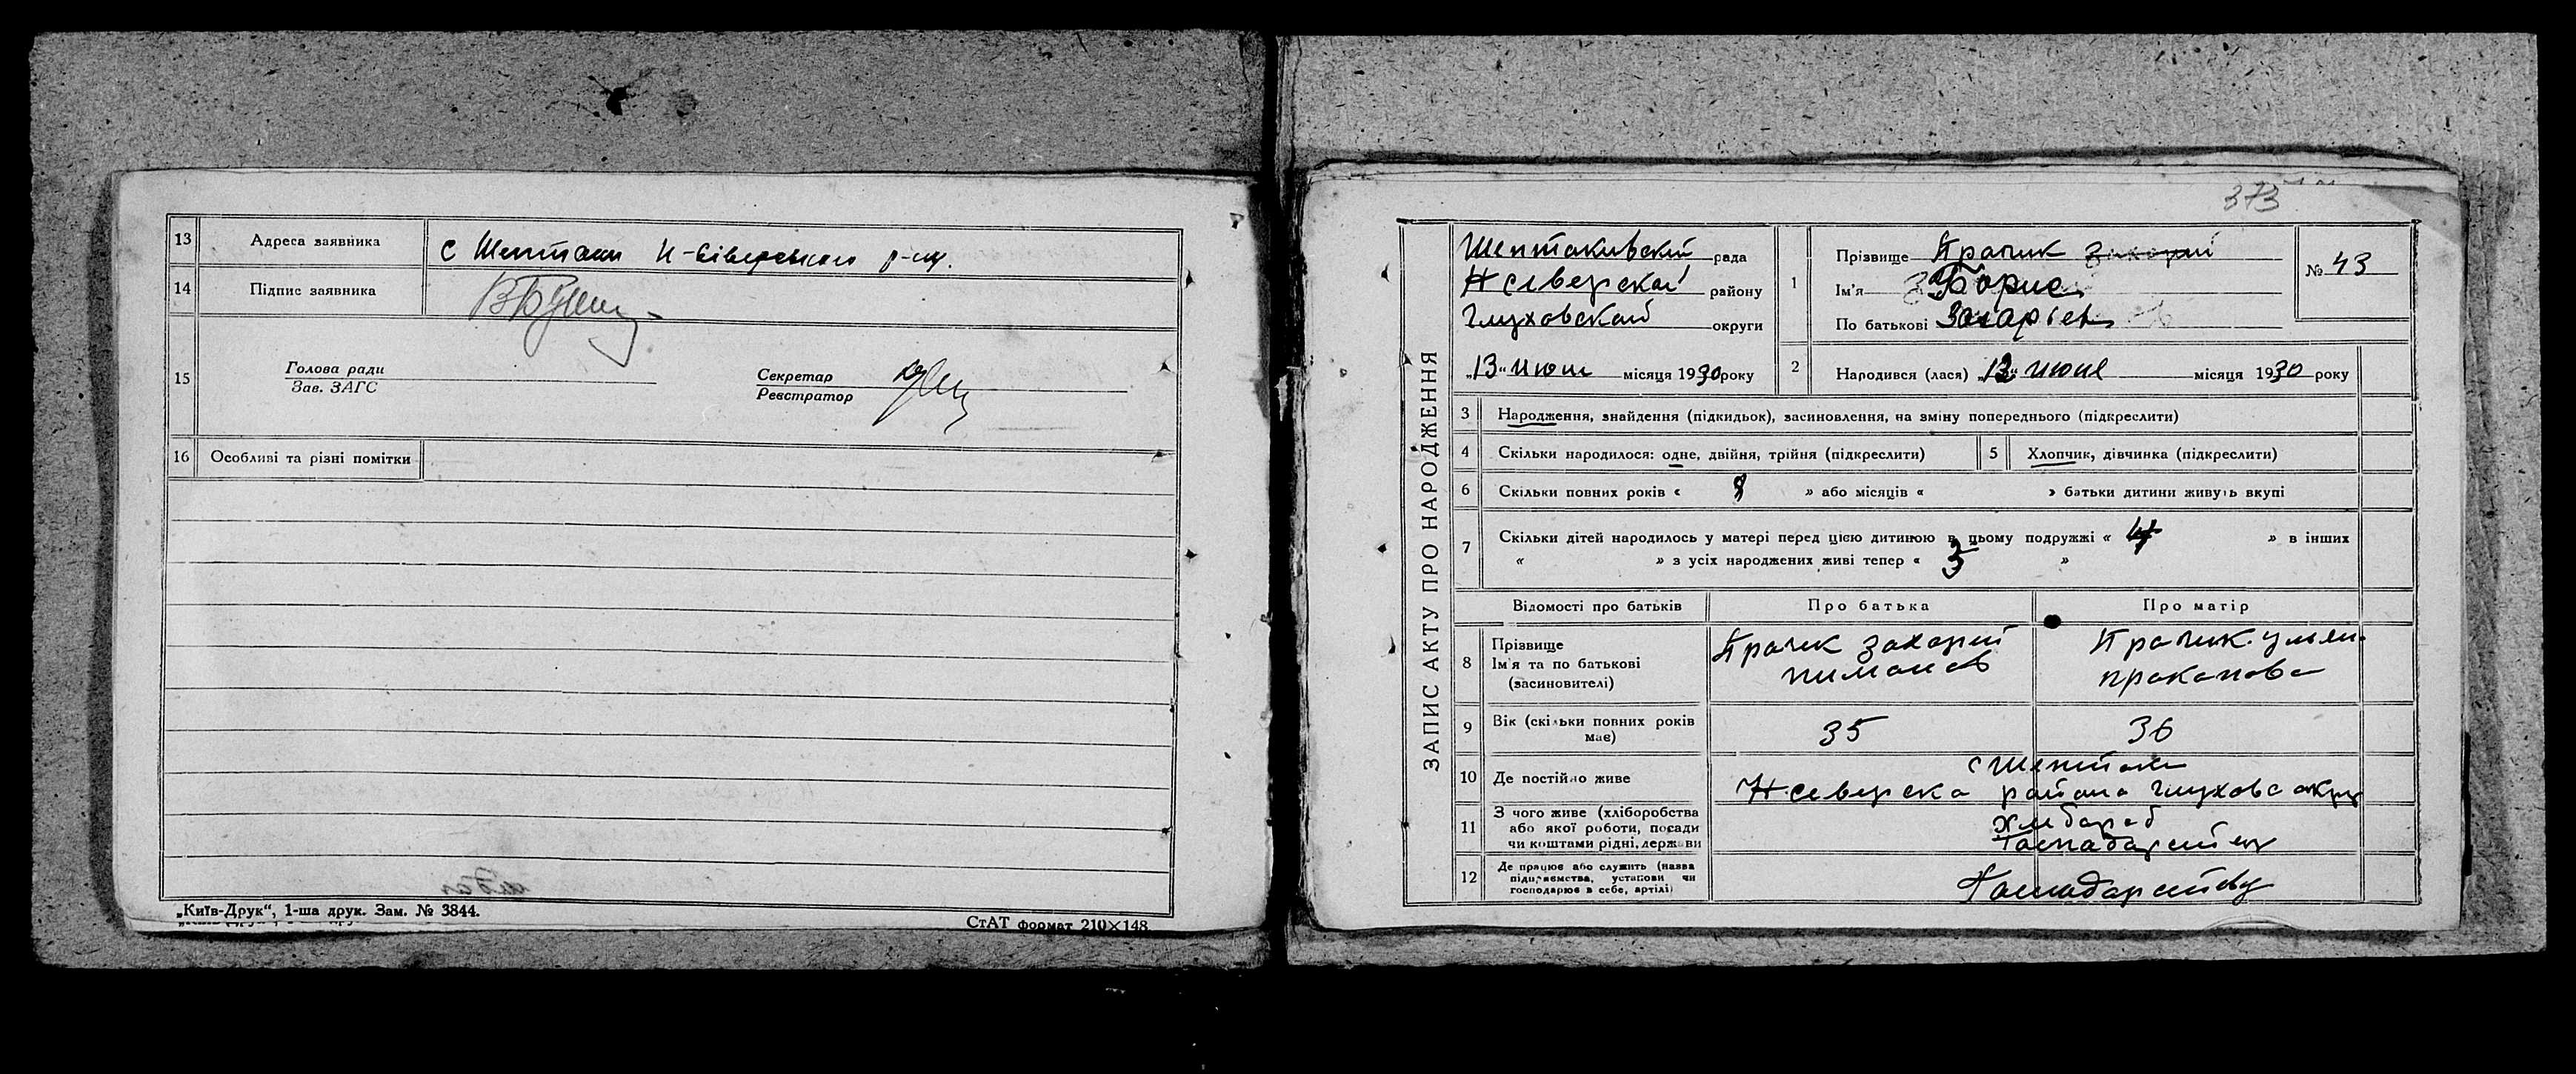 13 Адреса заявника с Шептаки Н-Сіверського р-ну.
14 Підпис заявника
15 Голова ради
Зав. ЗАГС
Секретар
Реєстратор
16 Особливі та різні помітки
„Київ-Друк“, 1-ша друк. Зам. № 3844.
СтАТ формат 210×148
373
ЗАПИС АКТУ ПРО НАРОДЖЕННЯ
Шептаковский рада
Н Северской району
Глуховской округи
„13“ июня місяця 1930 року
1 Прізвище Прачик Захарий
Ім'я Борис
По батькові Захарьев
№ 43
2 Народився (лася) „13“ июня місяця 1930 року
3 Народження, знайдення (підкидьок), засиновлення, на зміну попереднього (підкреслити)
4 Скільки народилося: одне, двійня, трійня (підкреслити)
5 Хлопчик, дівчинка (підкреслити)
6 Скільки повних років « 8 » або місяців « » батьки дитини живуть вкупі
7 Скільки дітей народилось у матері перед цією дитиною в цьому подружжі « 4 » в інших
« » з усіх народжених живі тепер « 3 »
Відомості про батьків Про батька Про матір
8 Прізвище
Ім'я та по батькові
(засиновителі)
Прачик Захарий
Пиманов
Прачик Ульян.
пракапова
9 Вік (скільки повних років
має)
35 36
10 Де постійно живе
с Шептаки
Н. северска района Глухова окру
11 З чого живе (хліборобства
або якої роботи, посади
чи коштами рідні, держави
хлебароб
12 Де працює або служить (назва
підприємства, установи чи
господарює в себе, артілі)